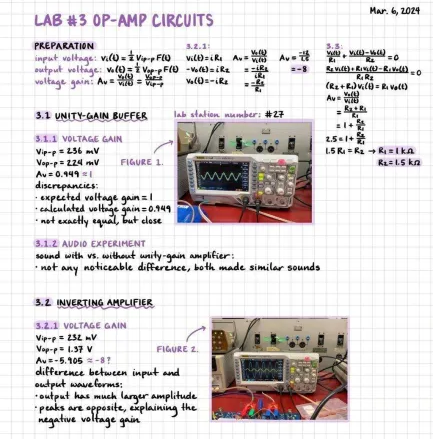 Mar. 6, 2024
LAB #3 OP-AMP CIRCUITS
PREPARATION
input voltage: Vi(t) = ½ Vip-p F(t)
output voltage: Vo(t) = ½ Vop-p F(t)
voltage gain: Av = Vo(t)/Vi(t) = Vop-p/Vip-p
3.2.1:
Vi(t) = iR1
-Vo(t) = iR2
Vo(t) = -iR2
Av = Vo(t)/Vi(t)
= -iR2/iR1
= -R2/R1
= -8
3.3:
(R2 + R1)Vi(t) = R1 Vo(t)
Av = Vo(t)/Vi(t)
= R2 + R1/R1
= 1 + R2/R1
2.5 = 1 + R2/R1
1.5 R1 = R2 → R1 = 1 kΩ
R2 = 1.5 kΩ
3.1 UNITY-GAIN BUFFER
lab station number: #27
3.1.1 VOLTAGE GAIN
Vip-p = 236 mV
Vop-p = 224 mV
Av = 0.949 ≈ 1
FIGURE 1.
discrepancies:
· expected voltage gain = 1
· calculated voltage gain = 0.949
· not exactly equal, but close
3.1.2 AUDIO EXPERIMENT
sound with vs. without unity-gain amplifier:
· not any noticeable difference, both made similar sounds
3.2 INVERTING AMPLIFIER
3.2.1 VOLTAGE GAIN
Vip-p = 232 mV
Vop-p = 1.37 V
Av = -5.905 ≈ -8?
FIGURE 2.
difference between input and
output waveforms:
· output has much larger amplitude
· peaks are opposite, explaining the
negative voltage gain